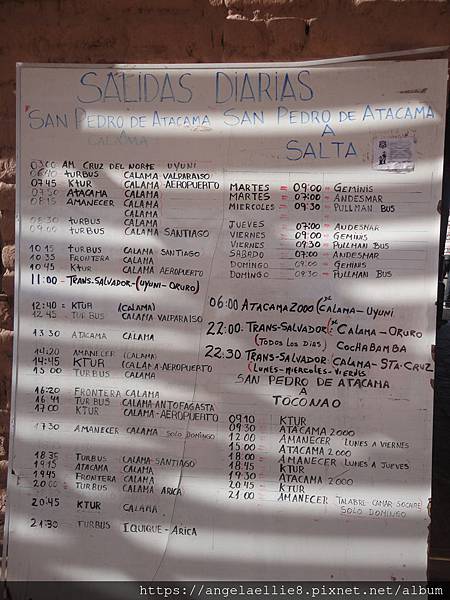 SALIDAS DIARIAS
SAN PEDRO DE ATACAMA
CALAMA
03:00 AM CRUZ DEL NORTE UYUNI
06:40 TURBUS CALAMA VALPARAISO
07:45 KTUR CALAMA-AEROPUERTO
07:50 ATACAMA CALAMA
08:15 AMANECER CALAMA
CALAMA
08:30 TURBUS CALAMA
09:00 TURBUS CALAMA SANTIAGO
10:15 TURBUS CALAMA SANTIAGO
10:35 FRONTERA CALAMA
10:45 KTUR CALAMA AEROPUERTO
11:00 - TRANS-SALVADOR-(UYUNI-ORURO)
12:40 = KTUR (CALAMA)
12:45 TURBUS CALAMA VALPARAISO
13:30 ATACAMA CALAMA
14:20 AMANECER (CALAMA)
14:45 KTUR (CALAMA-AEROPUERTO
15:00 TURBUS CALAMA
16:20 FRONTERA CALAMA
16:41 TURBUS CALAMA-ANTOFAGASTA
17:00 KTUR CALAMA-AEROPUERTO
17:30 AMANECER CALAMA SOLO DOMINGO
18:35 TURBUS CALAMA-SANTIAGO
19:15 ATACAMA CALAMA
19:45 FRONTERA CALAMA
20:00 TURBUS CALAMA ARICA
20:45 KTUR CALAMA
21:30 TURBUS IQUIQUE-ARICA
SAN PEDRO DE ATACAMA
A
SALTA
MARTES = 09:00 = GEMINIS
MARTES = 07:00 = ANDESMAR
MIERCOLES = 09:30 = PULLMAN BUS
JUEVES = 07:00 = ANDESMAR
VIERNES = 09:00 = GEMINIS
VIERNES = 09:30 = PULLMAN BUS
SABADO = 07:00 = ANDESMAR
DOMINGO = 09:00 = GEMINIS
DOMINGO = 09:30 = PULLMAN BUS
06:00 ATACAMA 2000 CALAMA-UYUNI
22:00. TRANS-SALVADOR CALAMA-ORURO
(TODOS LOS DIAS) COCHABAMBA
22:30 TRANS-SALVADOR CALAMA-STA-CRUZ
(LUNES-MIERCOLES-VIERNES
SAN PEDRO DE ATACAMA
A
TOCONAO
09:10 KTUR
09:30 ATACAMA 2000
12:00 AMANECER LUNES A VIERNES
15:00 ATACAMA 2000
18:00 AMANECER LUNES A JUEVES
18:45 KTUR
19:30 ATACAMA 2000
20:45 KTUR
21:00 AMANECER TALABRE-CAMAR SOCAIRE
SOLO DOMINGO
https://angelaellie8.pixnet.net/album